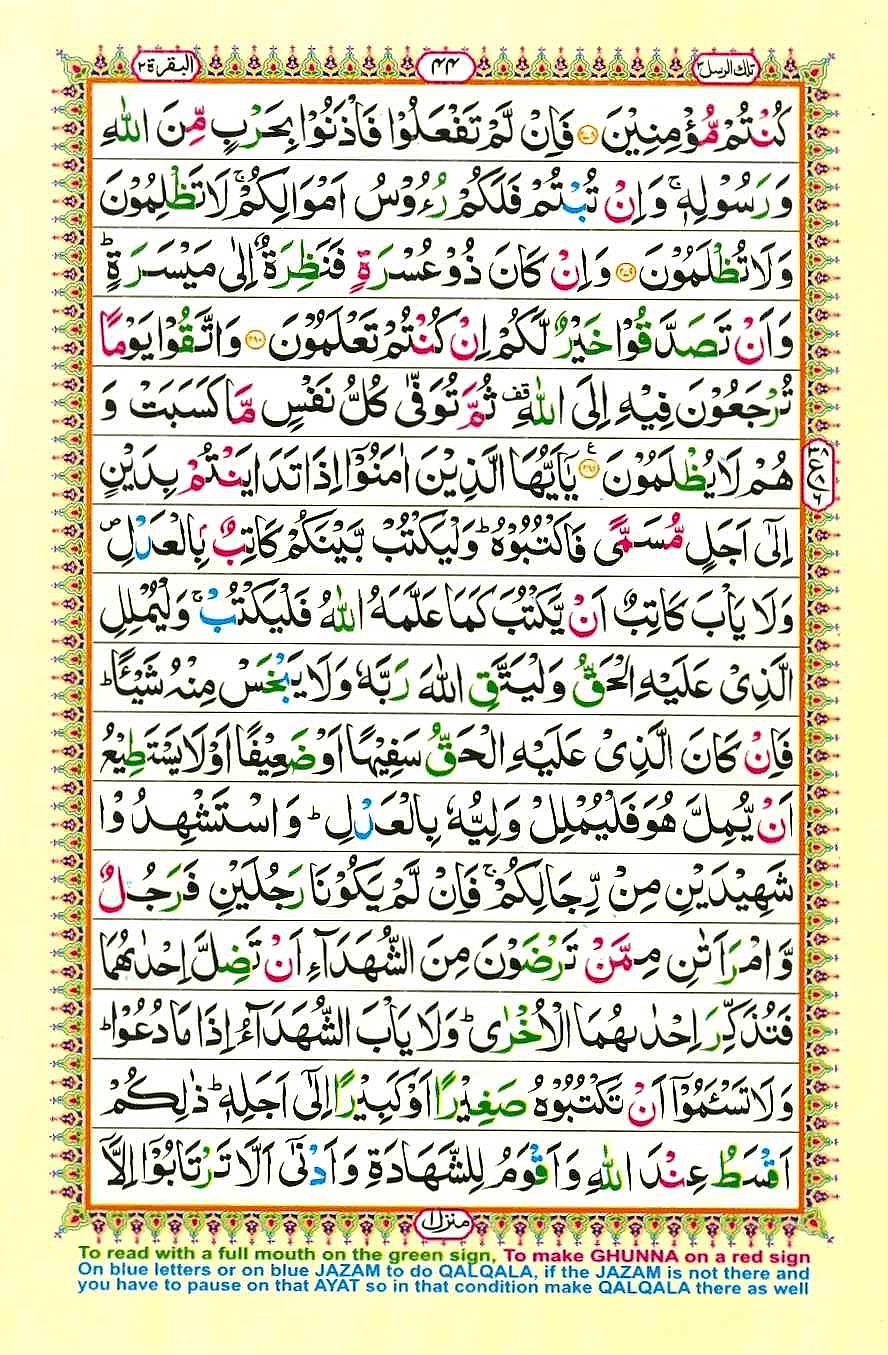 تلك الرسل ٣ ٤٤ البقرة ٢
كُنْتُمْ مُّؤْمِنِيْنَ ۝٢٧٨ فَاِنْ لَّمْ تَفْعَلُوْا فَاْذَنُوْا بِحَرْبٍ مِّنَ اللّٰهِ
وَرَسُوْلِهٖ ۚ وَاِنْ تُبْتُمْ فَلَكُمْ رُءُوْسُ اَمْوَالِكُمْ ۚ لَا تَظْلِمُوْنَ
وَلَا تُظْلَمُوْنَ ۝٢٧٩ وَاِنْ كَانَ ذُوْ عُسْرَةٍ فَنَظِرَةٌ اِلٰى مَيْسَرَةٍ ؕ
وَاَنْ تَصَدَّقُوْا خَيْرٌ لَّكُمْ اِنْ كُنْتُمْ تَعْلَمُوْنَ ۝٢٨٠ وَاتَّقُوْا يَوْمًا
تُرْجَعُوْنَ فِيْهِ اِلَى اللّٰهِ ۗ قف ثُمَّ تُوَفّٰى كُلُّ نَفْسٍ مَّا كَسَبَتْ وَ
هُمْ لَا يُظْلَمُوْنَ ۝٢٨١ ع يٰۤاَيُّهَا الَّذِيْنَ اٰمَنُوْۤا اِذَا تَدَايَنْتُمْ بِدَيْنٍ
اِلٰۤى اَجَلٍ مُّسَمًّى فَاكْتُبُوْهُ ؕ وَلْيَكْتُبْ بَّيْنَكُمْ كَاتِبٌۢ بِالْعَدْلِ ص
وَلَا يَاْبَ كَاتِبٌ اَنْ يَّكْتُبَ كَمَا عَلَّمَهُ اللّٰهُ فَلْيَكْتُبْ ۚ وَلْيُمْلِلِ
الَّذِيْ عَلَيْهِ الْحَقُّ وَلْيَتَّقِ اللّٰهَ رَبَّهٗ وَلَا يَبْخَسْ مِنْهُ شَيْـًٔا ؕ
فَاِنْ كَانَ الَّذِيْ عَلَيْهِ الْحَقُّ سَفِيْهًا اَوْ ضَعِيْفًا اَوْ لَا يَسْتَطِيْعُ
اَنْ يُّمِلَّ هُوَ فَلْيُمْلِلْ وَلِيُّهٗ بِالْعَدْلِ ؕ وَاسْتَشْهِدُوْا
شَهِيْدَيْنِ مِنْ رِّجَالِكُمْ ۚ فَاِنْ لَّمْ يَكُوْنَا رَجُلَيْنِ فَرَجُلٌ
وَّامْرَاَتٰنِ مِمَّنْ تَرْضَوْنَ مِنَ الشُّهَدَآءِ اَنْ تَضِلَّ اِحْدٰىهُمَا
فَتُذَكِّرَ اِحْدٰىهُمَا الْاُخْرٰى ؕ وَلَا يَاْبَ الشُّهَدَآءُ اِذَا مَا دُعُوْا ؕ
وَلَا تَسْـَٔمُوْۤا اَنْ تَكْتُبُوْهُ صَغِيْرًا اَوْ كَبِيْرًا اِلٰۤى اَجَلِهٖ ؕ ذٰلِكُمْ
اَقْسَطُ عِنْدَ اللّٰهِ وَاَقْوَمُ لِلشَّهَادَةِ وَاَدْنٰۤى اَلَّا تَرْتَابُوْۤا اِلَّاۤ
منزل ١
To read with a full mouth on the green sign, To make GHUNNA on a red sign
On blue letters or on blue JAZAM to do QALQALA, if the JAZAM is not there and
you have to pause on that AYAT so in that condition make QALQALA there as well